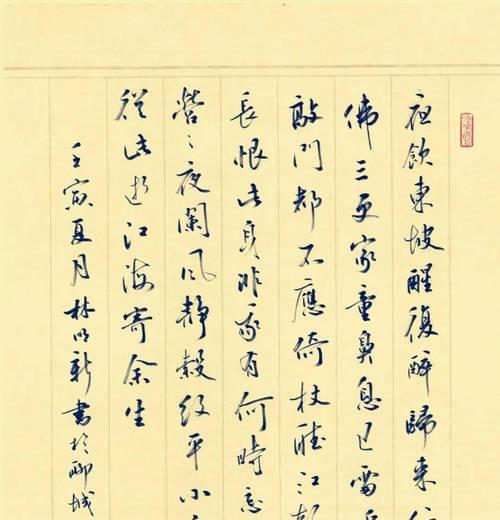 夜飲東坡醒復醉歸來
佛三更家童鼻息已雷
敲門都不應倚杖聽江
長恨此身非我有何時忘
營〻夜闌風靜縠紋平小
從此逝江海寄余生
壬寅夏月林明新書於聊城